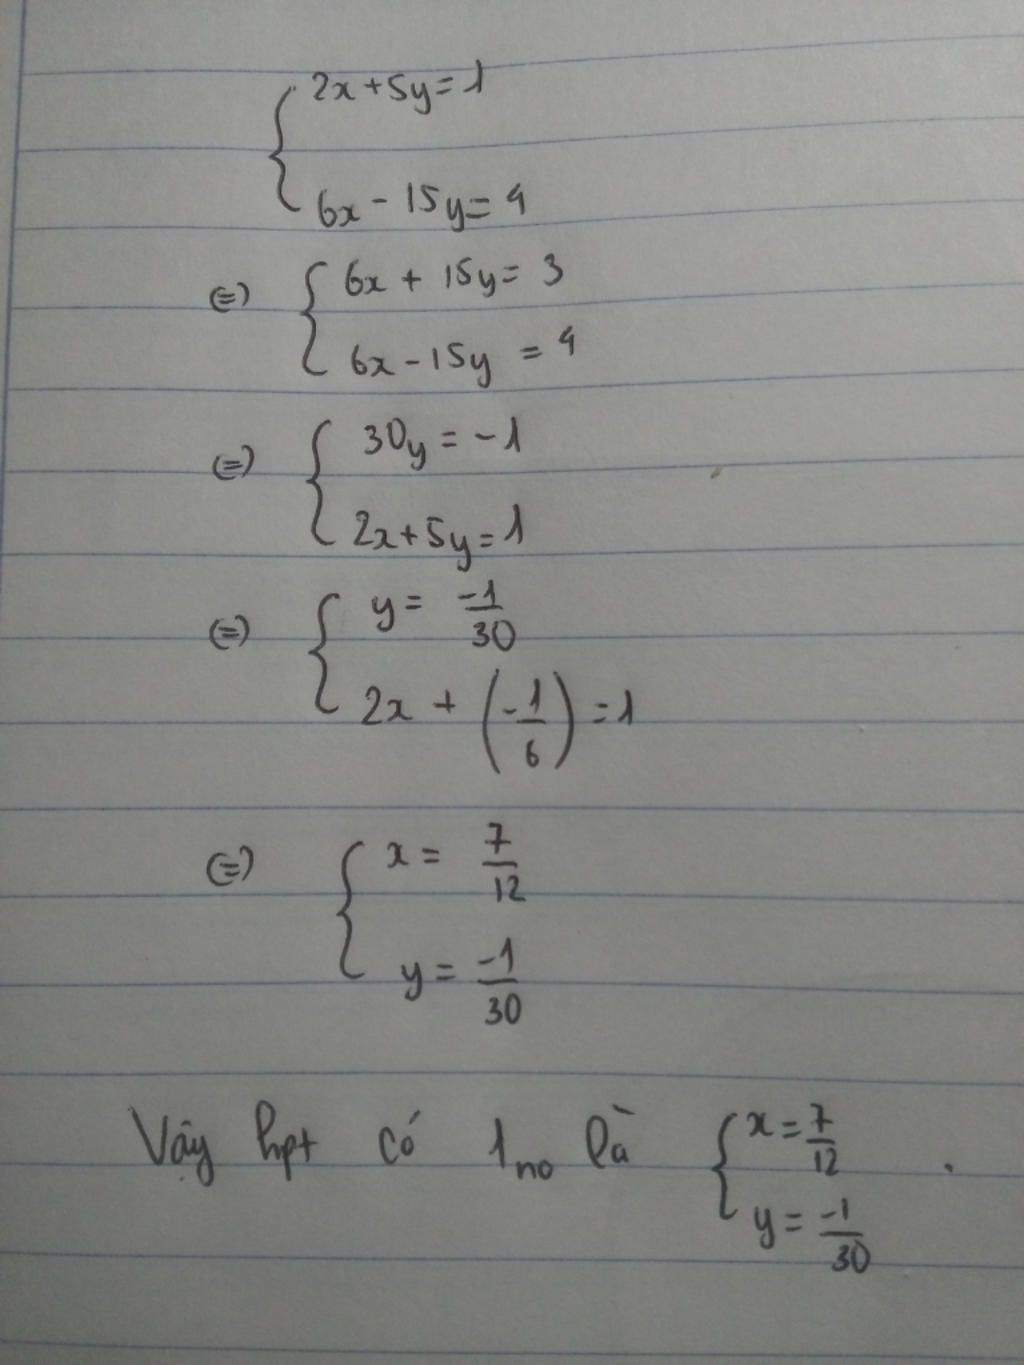 { 2x + 5y = 1
6x - 15y = 4
(=) { 6x + 15y = 3
6x - 15y = 4
(=) { 30y = -1
2x + 5y = 1
(=) { y = -1/30
2x + (-1/6) = 1
(=) { x = 7/12
y = -1/30
Vậy hpt có 1 no là { x = 7/12 .
y = -1/30